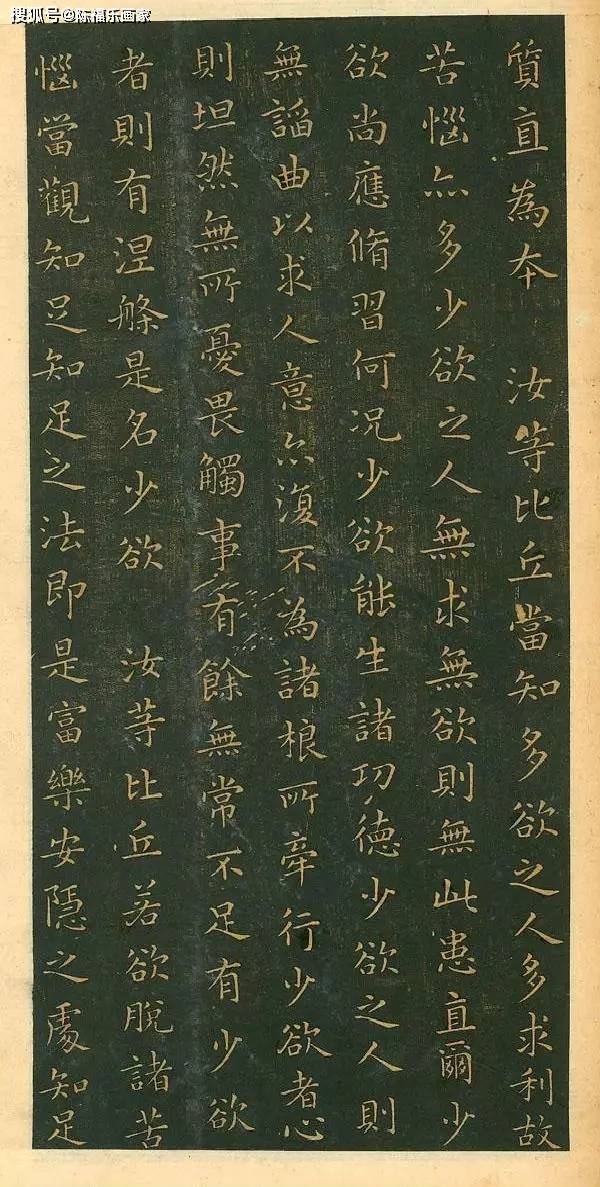 搜狐号@陈福乐画家
質直為本 汝等比丘當知多欲之人多求利故
苦惱亦多少欲之人無求無欲則無此患直爾少
欲尚應脩習何況少欲能生諸功德少欲之人則
無諂曲以求人意亦復不為諸根所牽行少欲者心
則坦然無所憂畏觸事有餘無常不足有少欲
者則有涅槃是名少欲 汝等比丘若欲脫諸苦
惱當觀知足知足之法即是富樂安隱之處知足